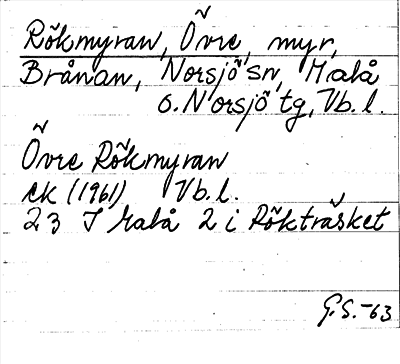 Rökmyran, Övre, myr,
Brånan, Norsjö sn, Malå
o. Norsjö tg, Vb. l.
Övre Rökmyran
ek (1961) Vb. l.
23 J Malå 2 i Rökträsket
G.S. -63